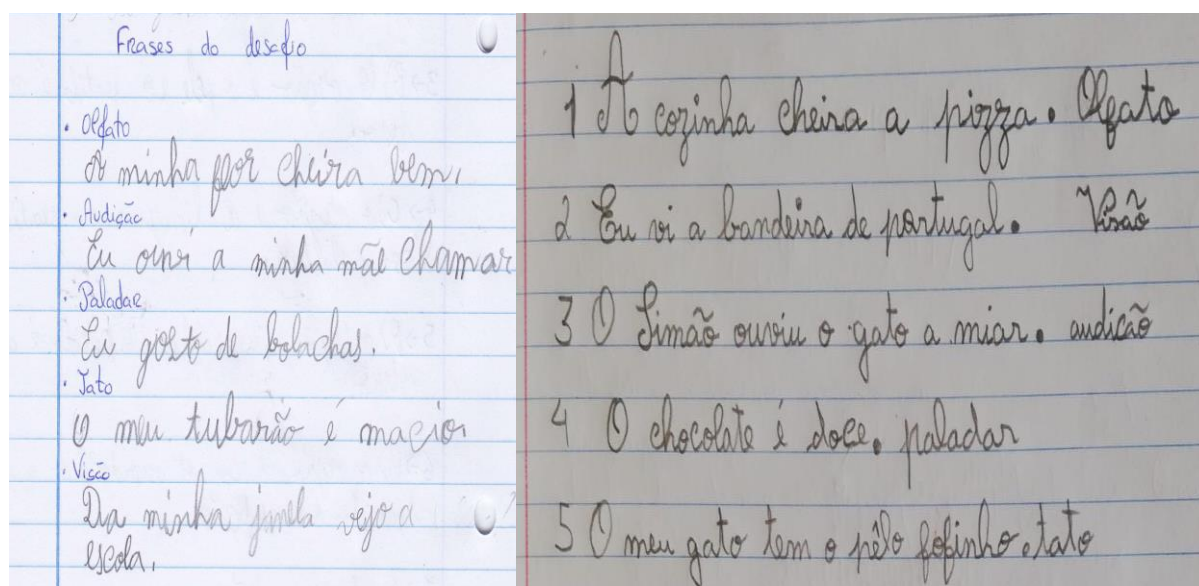 Frases do desafio
. Olfato
A minha flor cheira bem.
. Audição
Eu ouvi a minha mãe chamar
. Paladar
Eu gosto de bolachas.
. Tato
O meu tubarão é macio.
. Visão
Da minha janela vejo a
escola.
1 A cozinha cheira a pizza. Olfato
2 Eu vi a bandeira de portugal. Visão
3 O Simão ouviu o gato a miar. audicão
4 O chocolate é doce. paladar
5 O meu gato tem o pêlo fofinho. tato